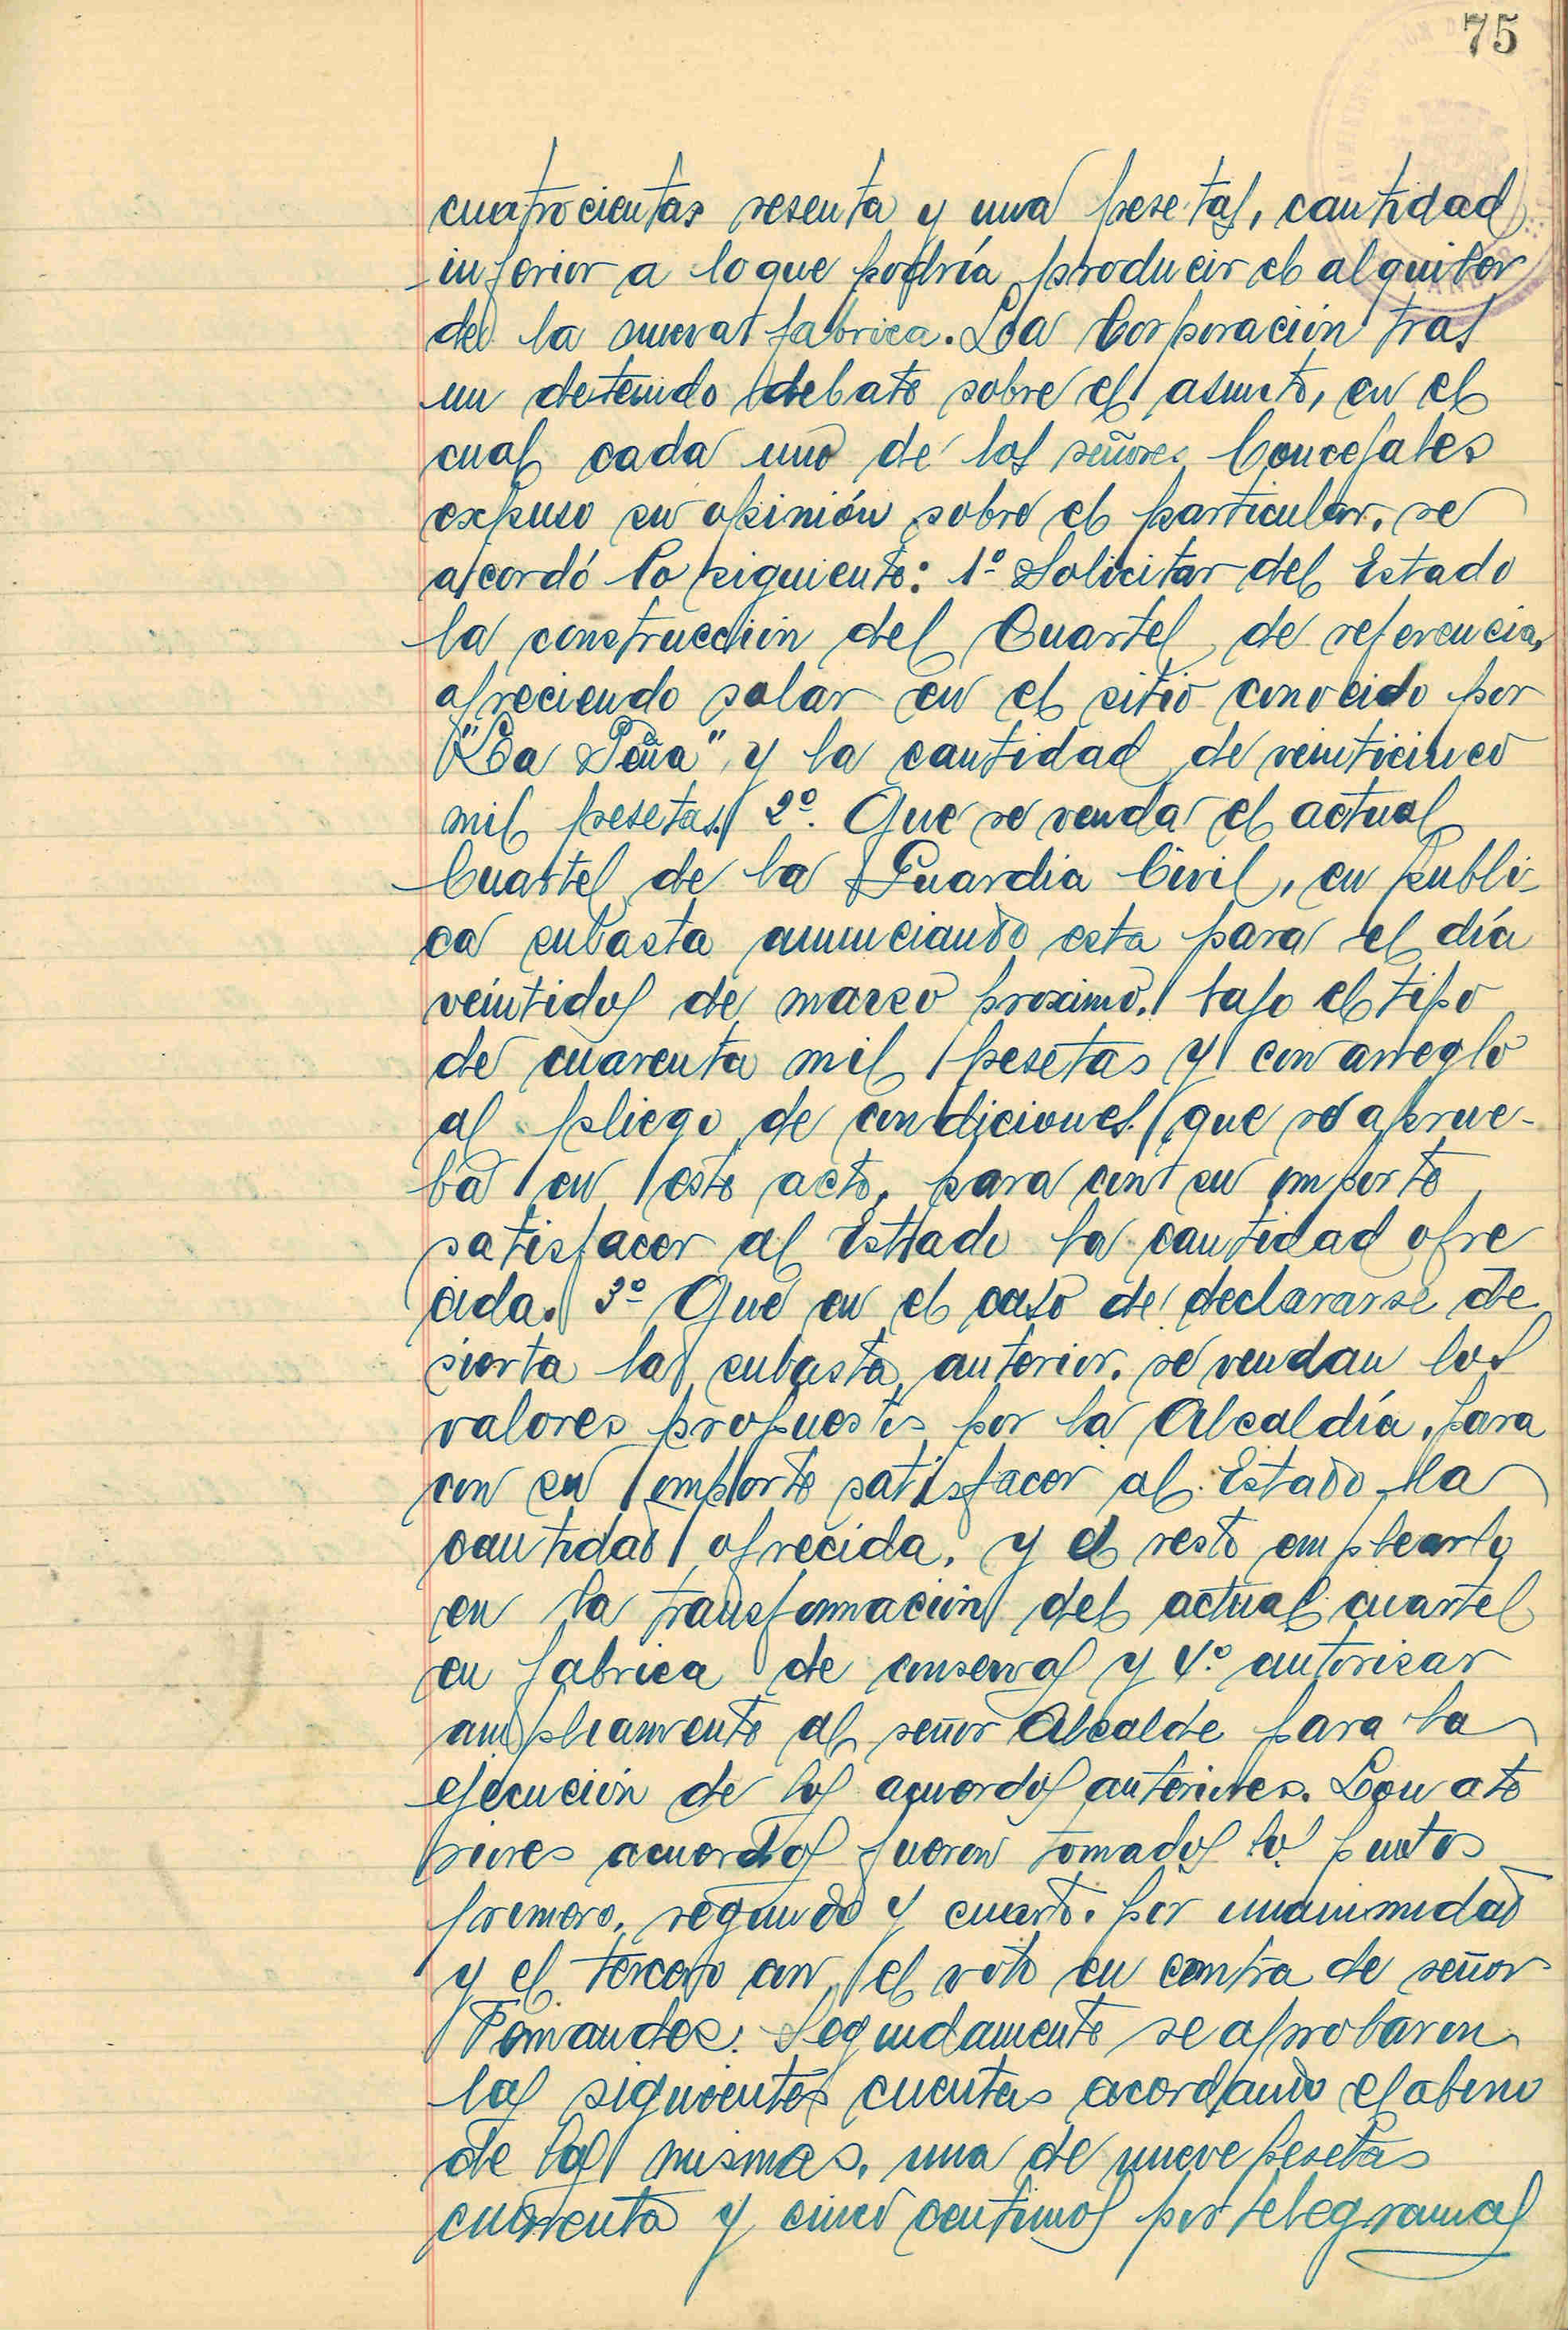 75
cuatrocientas sesenta y una pesetas, cantidad
inferior a lo que podría producir el alquiler
de la nueva fabrica. La Corporación tras
un detenido debate sobre el asunto, en el
cual cada uno de los señores Concejales
expuso su opinión sobre el particular, se
acordó lo siguiente: 1º Solicitar del Estado
la construcción del Cuartel de referencia,
ofreciendo solar en el sitio conocido por
"La Peña" y la cantidad de veinticinco
mil pesetas. 2º. Que se venda el actual
Cuartel de la Guardia Civil, en públi-
ca subasta anunciando esta para el día
veintidos de marzo proximo, bajo el tipo
de cuarenta mil pesetas y con arreglo
al pliego de condiciones que se aprue-
ba en este acto, para con su importe
satisfacer al Estado la cantidad ofre
cida. 3º Que en el caso de declararse de
sierta la subasta anterior, se vendan los
valores propuestos por la Alcaldía, para
con su importe satisfacer al Estado la
cantidad ofrecida, y el resto emplearlo
en la transformación del actual cuartel
en fabrica de conservas y 4º. autorizar
ampliamente al señor Alcalde para la
ejecución de los acuerdos anteriores. Los
acuerdos fueron tomados los puntos
primero, segundo y cuarto, por unanimidad
y el tercero con el voto en contra de señor
Fernandez. Seguidamente se aprobaron
las siguientes cuentas acordando el abono
de las mismas, una de nueve pesetas
cuarenta y cinco centimos por telegramas